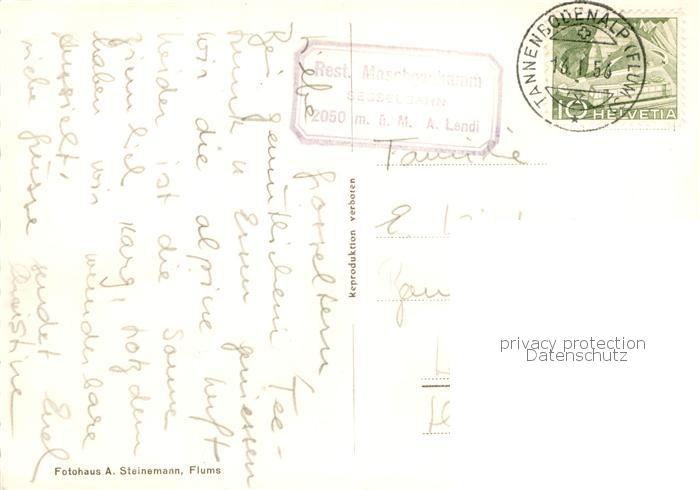 Liebe Grosseltern!
Bei gemütlichem Tee-
trunk u Essen geniessen
wir die alpine Luft
leider ist die Sonne
ziemlich karg, trotzdem
haben wir wunderbare
Aussicht!
liche Grüsse sendet Euch
Christine
Rest. Maschgenkamm
SESSELBAHN
2050 m. ü. M. A. Lendi
TANNENBODENALP (FLUMS)
16.I.56
10 HELVETIA
Familie
Reproduktion verboten
privacy protection
Datenschutz
Fotohaus A. Steinemann, Flums